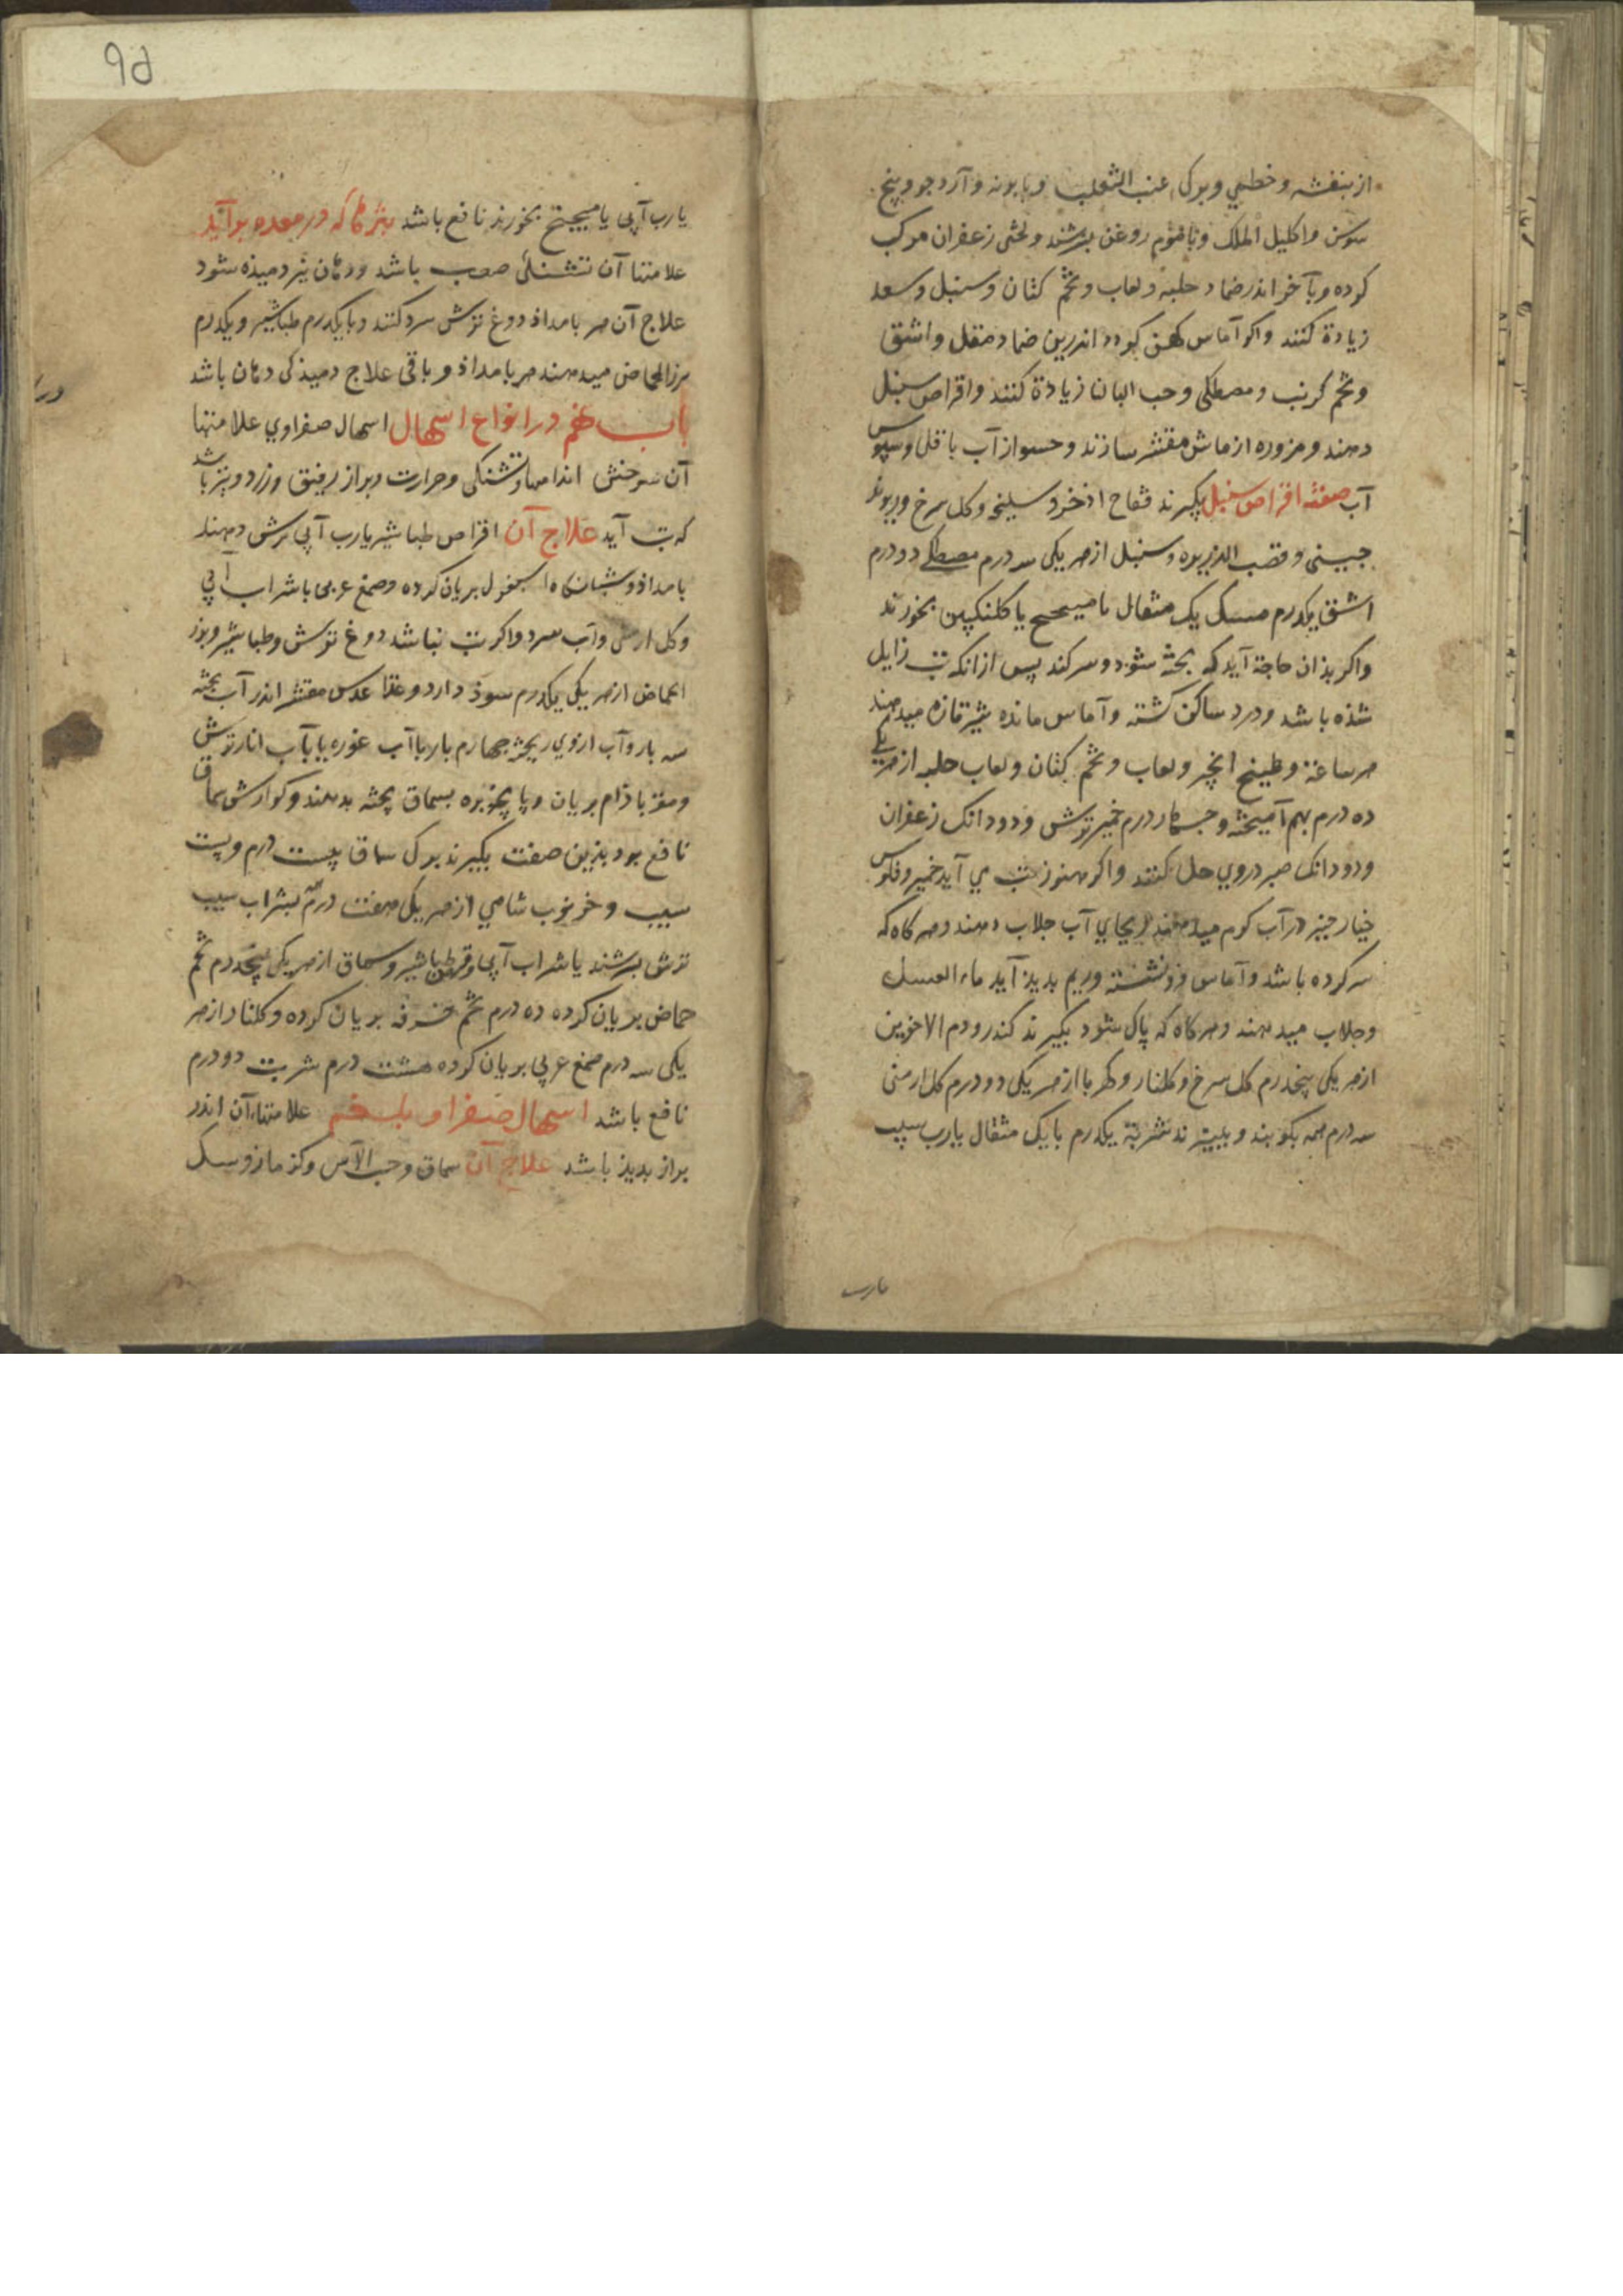 از بنفشه و خطمي و برک عنب الثعلب و بابونه و آرد جو و پنج
سوسن و اکلیل الملک و با موم روغن بسرشند و لختی زعفران مرکب
کرده و بآخر اندر ضماد حلبه و لعاب و تخم کتان و سنبل و سعد
زیادة کنند و اکر آماس کهن کردد اندرین ضماد مقل و اشق
و تخم کرنب و مصطکی و حب البان زیادة کنند و اقراص سنبل
دهند و مزوره از ماش مقشر سازند و حسو از آب باقلی و سپوس
آب صفته اقراص سنبل بکیرند فقاح اذخر و سلیخه و کل سرخ و ریوند
جینی و قصب الذریره و سنبل از هر یکی سه درم مصطکی دو درم
اشق یکدرم مسک یک مثقال با میبختج یا کلنکبین بخورند
و اکر بذان حاجة آید که پخته شود و سر کند پس از انکه تب زایل
شذه باشد و درد ساکن کشته و آماس مانده شیر تازه میدهند
هر ساعة و طبیخ انجیر و لعاب و تخم کتان و لعاب حلبه از هر یکی
ده درم بهم آمیخته و جهار درم خمیر ترش و دو دانک زعفران
و دو دانک صبر دروي حل کنند و اکر هنوز تب می آید خمیر و فلوس
خیار جنبر در آب کرم میدهند و بجاي آب جلاب دهند و هر کاه که
سر کرده باشد و آماس فرو نشسته و ریم بدیذ آید ماء العسل
و جلاب میدهند و هر کاه که پاک شود بکیرند کندر و دم الاخوین
از هر یکی پنجدرم کل سرخ و کلنار و کهربا از هر یکی دو درم کل ارمنی
سه درم همه بکوبند و ببیزند شربة یکدرم با یک مثقال یا رب سیب
یارب
٩۵
یا رب آبی یا میبختج بخورند نافع باشد بثرها که در معده بر آید
علامتها آن تشنکی صعب باشد و دهان نیز دمیذه شود
علاج آن هر بامداذ دوغ ترش سرد کنند و با یکدرم طباشیر و یکدرم
بزر الحماض میدهند هر بامداذ و باقی علاج دمیذکی دهان باشد
باب نهم در انواع اسهال اسهال صفراوي علامتها
آن سوزش اندامها و تشنکی و حرارت و براز رقیق و زرد و تیز باشد
که تب آید علاج آن اقراص طباشیر با رب آبی ترش دهند
بامداذ و شبانکاه اسبغول بریان کرده و صمغ عربی با شراب آبی
و کل ارمنی و آب سرد و اکر تب نباشد دوغ ترش و طباشیر و بزر
الحماض از هر یکی یکدرم سوذ دارد و غذا عدس مقشر اندر آب پخته
سه بار و آب ازوي ریخته جهارم بار با آب غوره یا باآب انار ترش
و مغز باذام بریان و پاچه بره بسماق پخته بدهند و کوارش سماق
نافع بود بذین صفت بکیرند برک سماق بیست درم و پست
سیب و خرنوب شامي از هر یکی هفت درم بشراب سیب
ترش بسرشند یا شراب آبی و قرص طباشیر و سماق از هر یکی پنجدرم تخم
حماض بریان کرده ده درم تخم خرفه بریان کرده و کلنار از هر
یکی سه درم صمغ عربی بریان کرده هشت درم شربت دو درم
نافع باشد اسهال صفرا و بلغم علامتهاء آن اندر
براز بدیذ باشد علاج آن سماق و حب الآس و کزمازو و سک